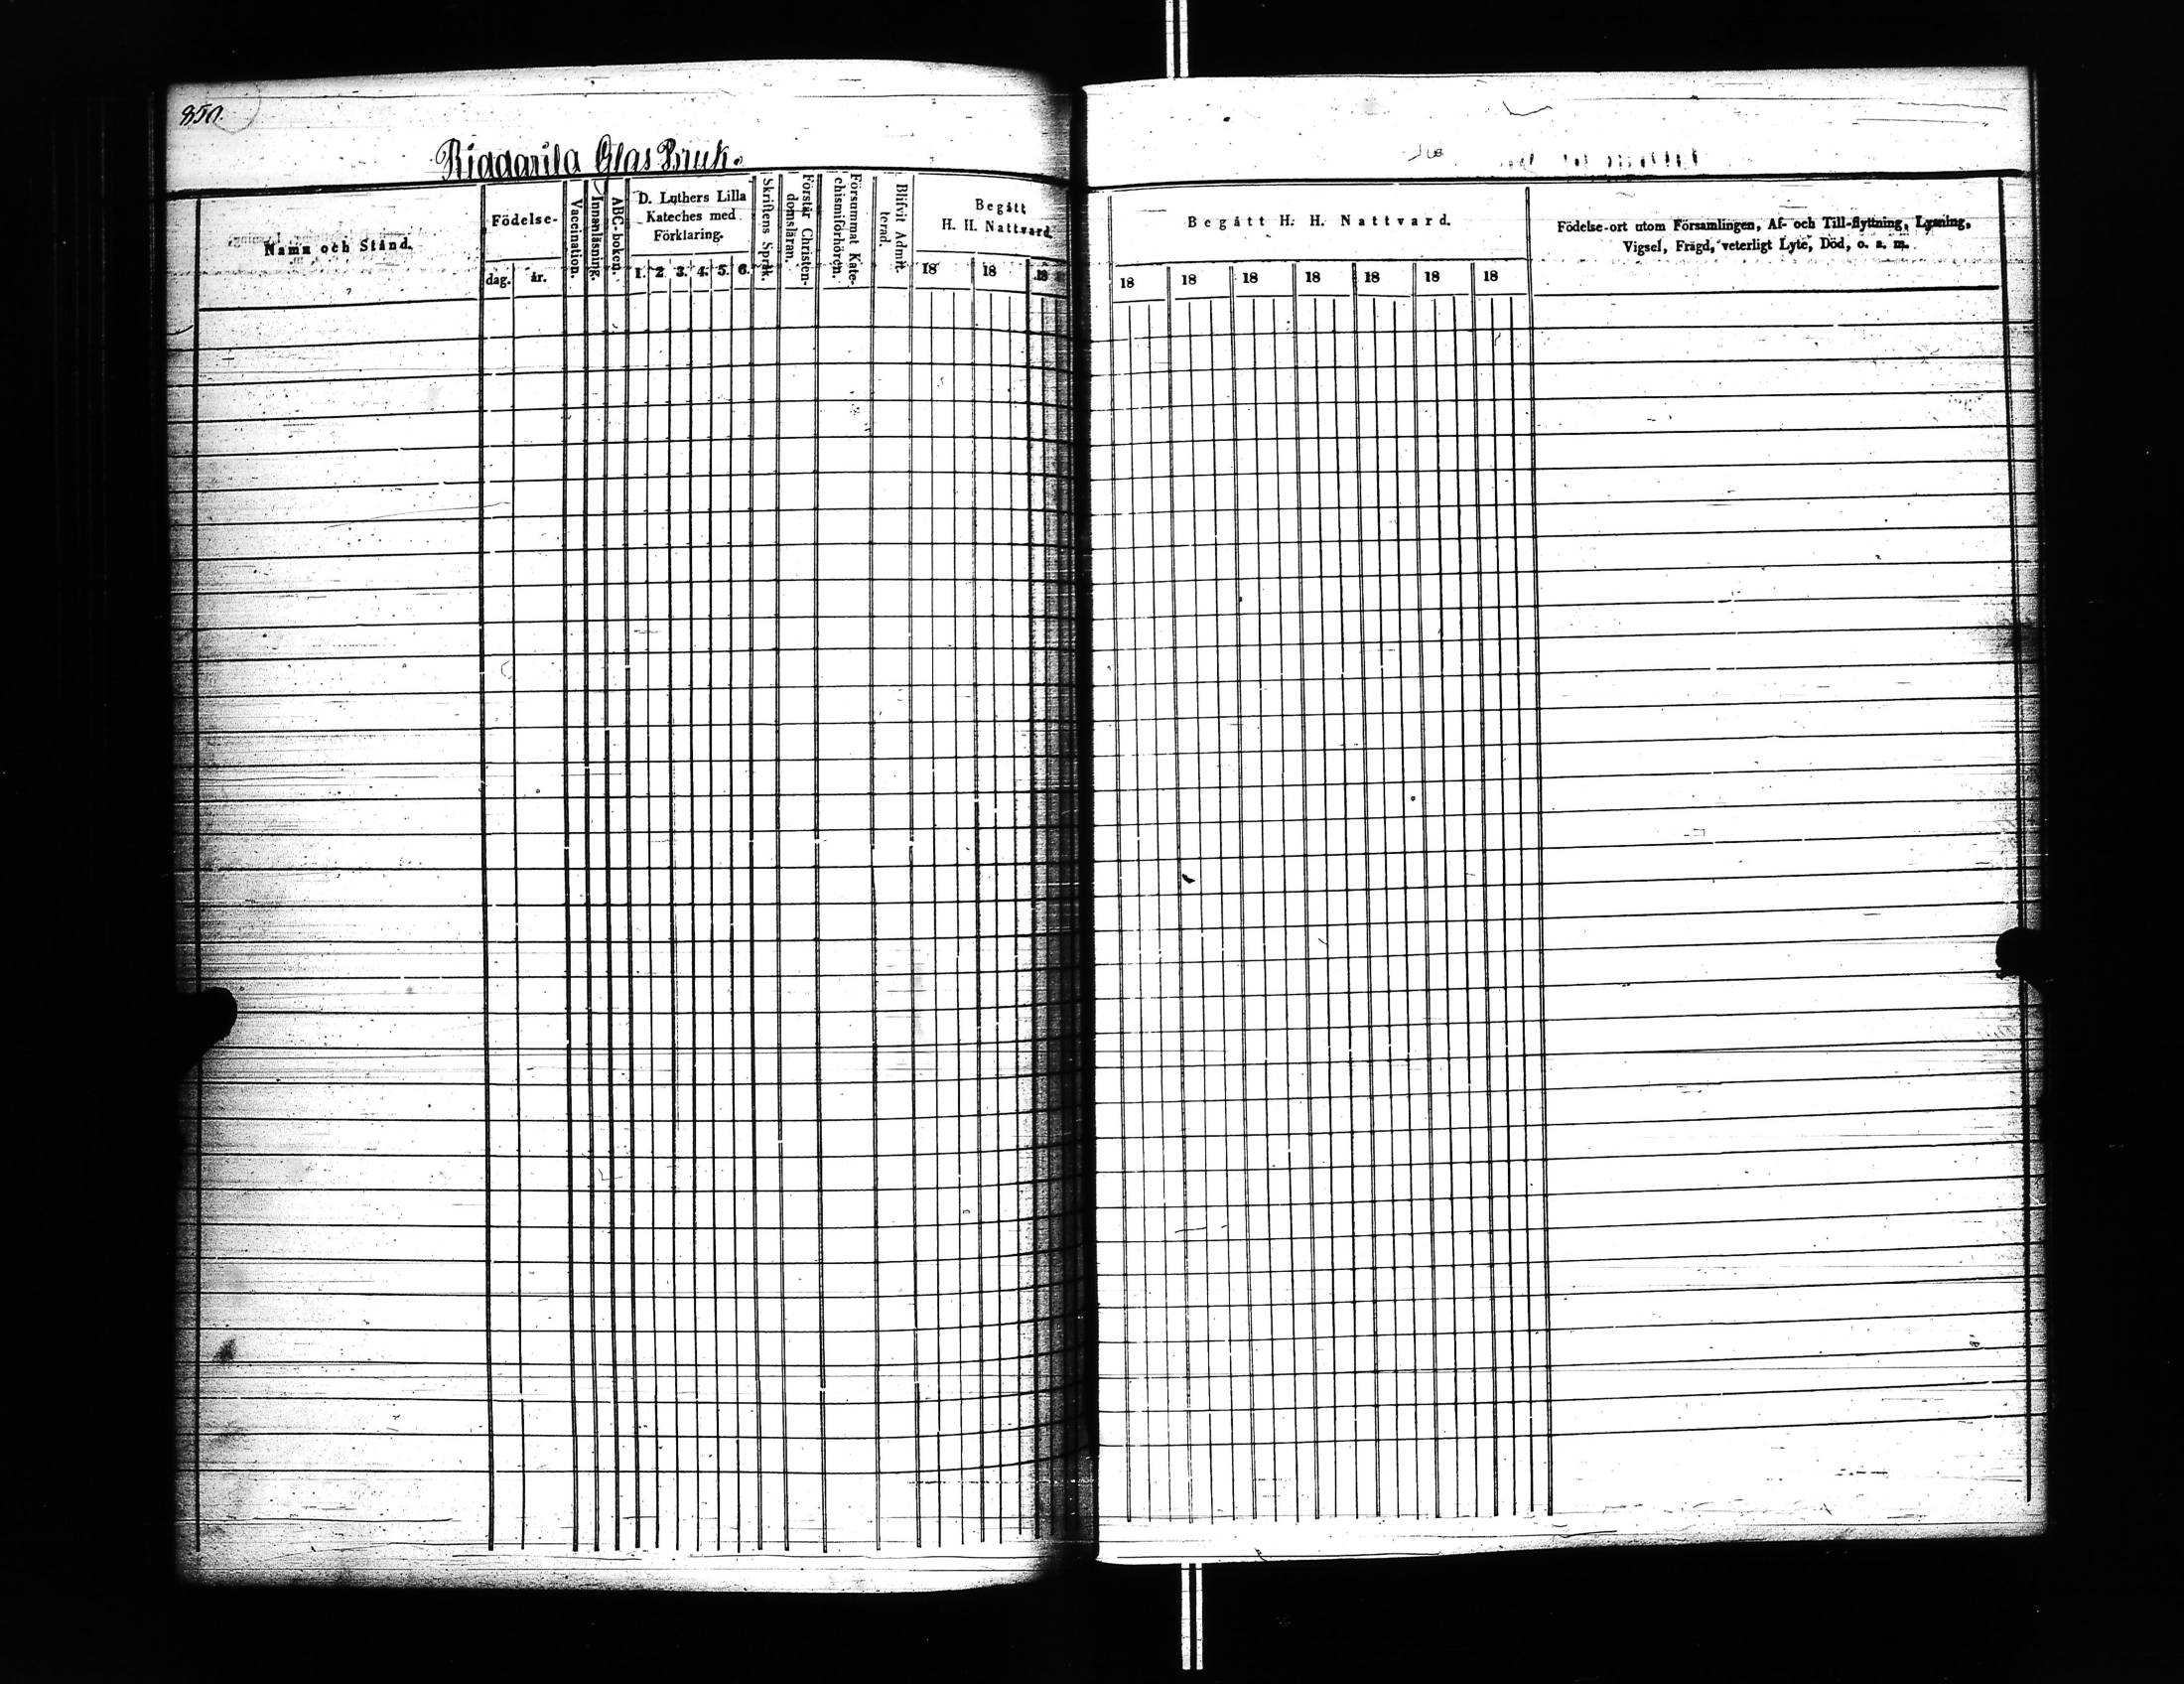 850.
Riggarila Glas Bruk.
Namn och Stånd.
Födelse-
dag. år.
Vaccination.
Innanläsning.
ABC-boken.
D. Luthers Lilla
Kateches med
Förklaring.
1. 2. 3. 4. 5. 6.
Skriftens Språk.
Förstår Christen-
domsläran.
Försummat Kate-
chismiförhören.
Blifvit Admit-
terad.
Begått
H. H. Nattvard.
18 18 18
Begått H. H. Nattvard.
18 18 18 18 18 18 18
Födelse-ort utom Församlingen, Af- och Till-flyttning, Lysning,
Vigsel, Frägd, veterligt Lyte, Död, o. s. m.